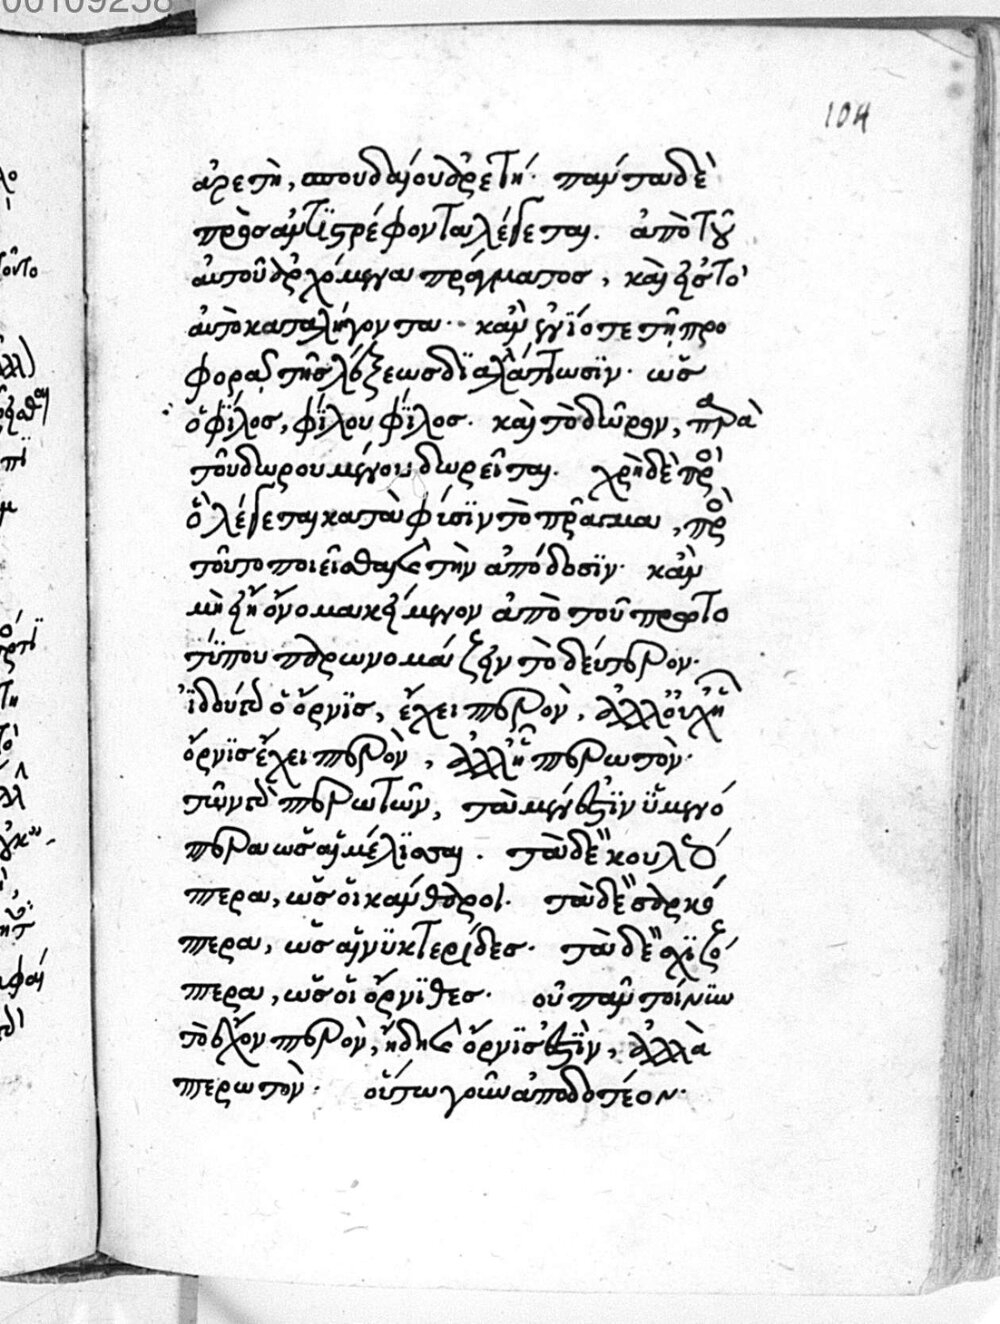 00109258
104
ἀρετὴ, σπουδαίου ἀρετή. πάντα δὲ
πρὸς ἀντιστρέφοντα λέγεται. ἀπὸ τοῦ
αὐτοῦ ἀρχόμενα πράγματος, καὶ εἰς τὸ
αὐτὸ καταλήγοντα. κἂν ἐνίοτε τῇ προ
φορᾷ τῆς λέξεως διαλάττωσιν. ὡς
ὁ φίλος, φίλου φίλος. καὶ τὸ δῶρον, παρὰ
τοῦ δωρουμένου δωρεῖται. χρὴ δὲ πρὸς
ὃ λέγεται κατὰ φύσιν τὸ πρᾶγμα, πρὸς
τοῦτο ποιεῖσθαι καὶ τὴν ἀπόδοσιν. κἂν
μὴ ᾖ ὄνομα κείμενον ἀπὸ τοῦ πρωτο
τύπου παρωνομάζειν τὸ δεύτερον.
ἰδοὺ γὰρ ὁ ὄρνις, ἔχει πτερὸν, ἀλλ' οὐχ ᾗ
ὄρνις ἔχει πτερὸν, ἀλλ' ᾗ πτερωτὸν.
τῶν γὰρ πτερωτῶν, τὰ μέν ἐστιν ὑμενό
πτερα ὡς αἱ μέλισσαι. τὰ δὲ κουλεό
πτερα, ὡς οἱ κάνθαροι. τὰ δὲ σαρκό
πτερα, ὡς αἱ νυκτερίδες. τὰ δὲ σχιζό
πτερα, ὡς οἱ ὄρνιθες. οὐ πᾶν τοίνυν
τὸ ἔχον πτερὸν, ἤδη καὶ ὄρνις ἐστὶν, ἀλλὰ
πτερωτὸν. οὕτω γοῦν ἀποδοτέον.